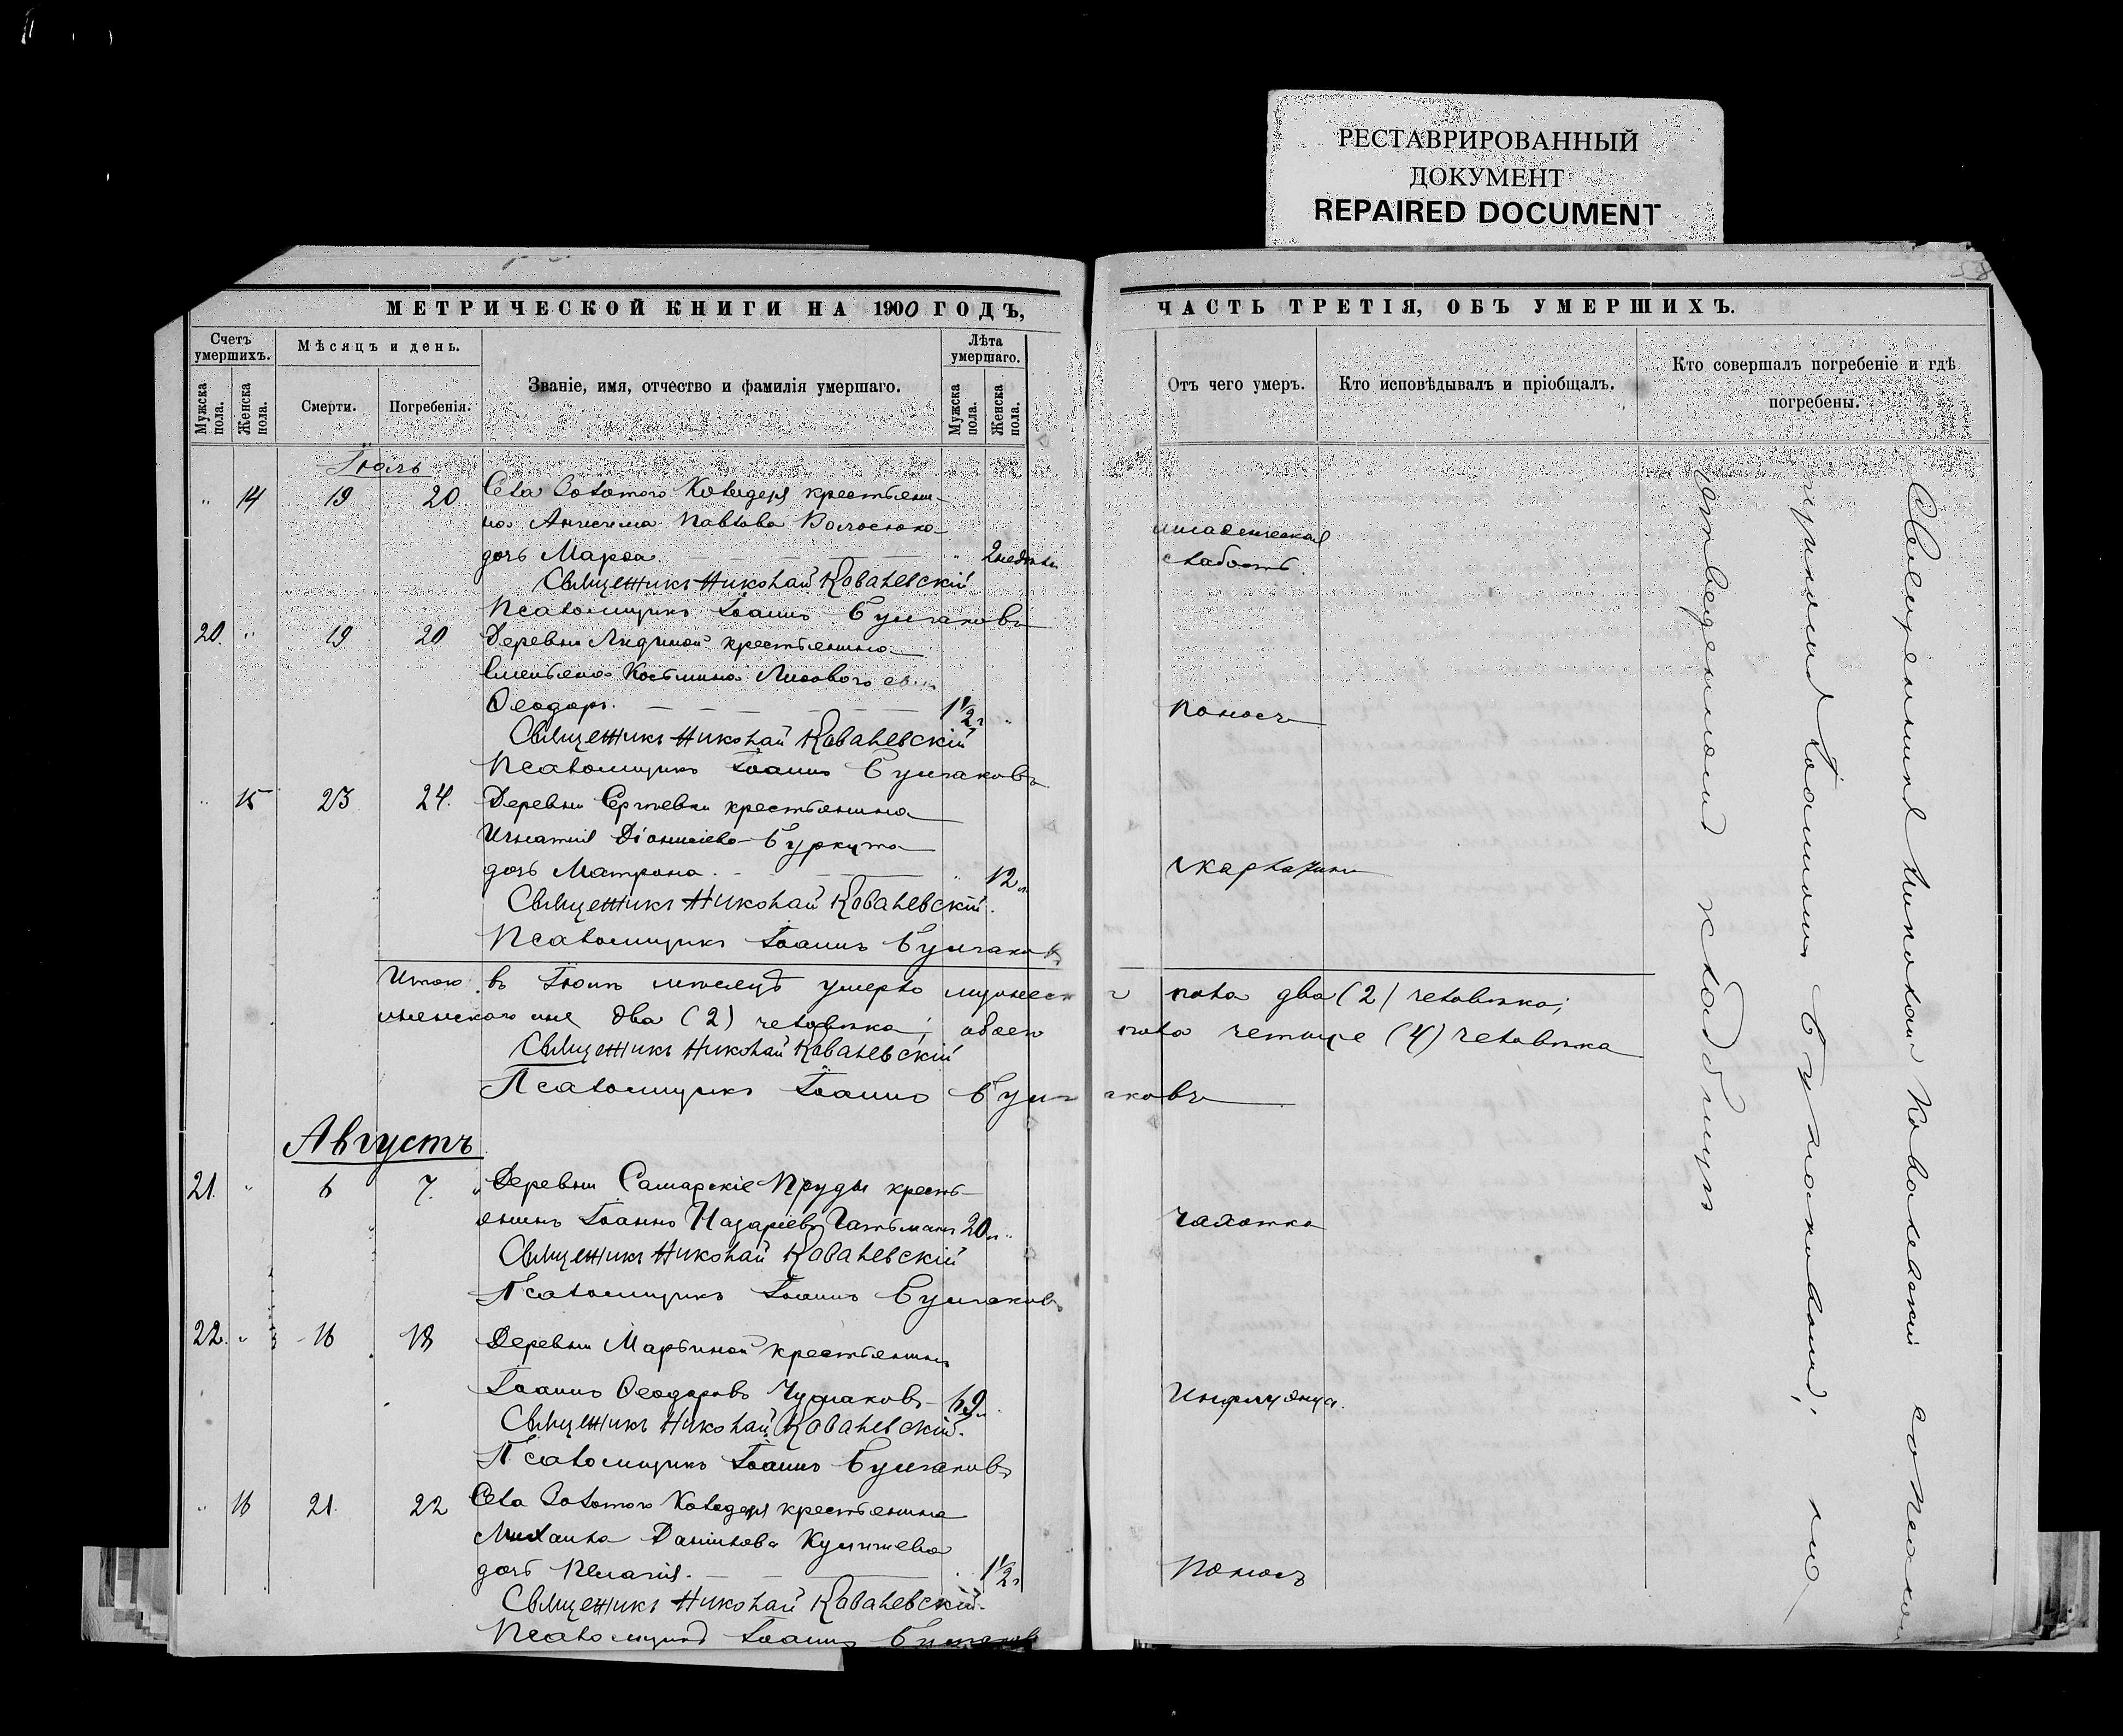 РЕСТАВРИРОВАННЫЙ
ДОКУМЕНТ
REPAIRED DOCUMENT
58
МЕТРИЧЕСКОЙ КНИГИ НА 1900 ГОДЪ,
Счетъ умершихъ.
Мужска пола.
Женска пола.
Мѣсяцъ и день.
Смерти.
Погребенія.
Званіе, имя, отчество и фамилія умершаго.
Лѣта умершаго.
Мужска пола.
Женска пола.
ЧАСТЬ ТРЕТІЯ, ОБЪ УМЕРШИХЪ.
Отъ чего умеръ.
Кто исповѣдывалъ и пріобщалъ.
Кто совершалъ погребеніе и гдѣ
погребены.
Іюль
" 14 19 20 Села Золотого Колодезя крестьяни-
на Анисима Павлова
дочь Марѳа. " 2 недѣли
младенческая
слабость.
Священникъ Николай Ковалевскій
Псаломщикъ Іоаннъ Булгаковъ
20. " 19 20 Деревни крестьянина
Емельяна Косьмина Лисового сынъ
Ѳеодоръ. 1½ г. "
поносъ
Священникъ Николай Ковалевскій
Псаломщикъ Іоаннъ Булгаковъ
" 15 23 24. Деревни Сергѣевки крестьянина
Игнатія Діонисіева Буркута
дочь Матрона. " 12 л.
скарлатина
Священникъ Николай Ковалевскій.
Псаломщикъ Іоаннъ Булгаковъ
Итого въ Іюлѣ мѣсяцѣ умерло мужеского пола два (2) человѣка;
женского же два (2) человѣка; обоего пола четыре (4) человѣка
Священникъ Николай Ковалевскій
Псаломщикъ Іоаннъ Булгаковъ
Августъ
21. " 6 7. Деревни Самарскіе Пруды кресть-
янинъ Іоаннъ Назаріевъ Гальманъ 20 л. "
чахотка
Священникъ Николай Ковалевскій
Псаломщикъ Іоаннъ Булгаковъ
22. " 16 18 Деревни Марьиной крестьянинъ
Іоаннъ Ѳеодоровъ Чумаковъ 69 л.
Инфлуэнца.
Священникъ Николай Ковалевскій.
Псаломщикъ Іоаннъ Булгаковъ
" 16 21. 22 Села Золотого Колодезя крестьянина
Михаила Даніилова
дочь Пелагія. 1½ г.
Поносъ
Священникъ Николай Ковалевскій.
Псаломщикъ Іоаннъ Булгаковъ
Священникъ Николай Ковалевскій со псалом
щикомъ Іоанномъ Булгаковымъ; на
отведенномъ кладбищѣ